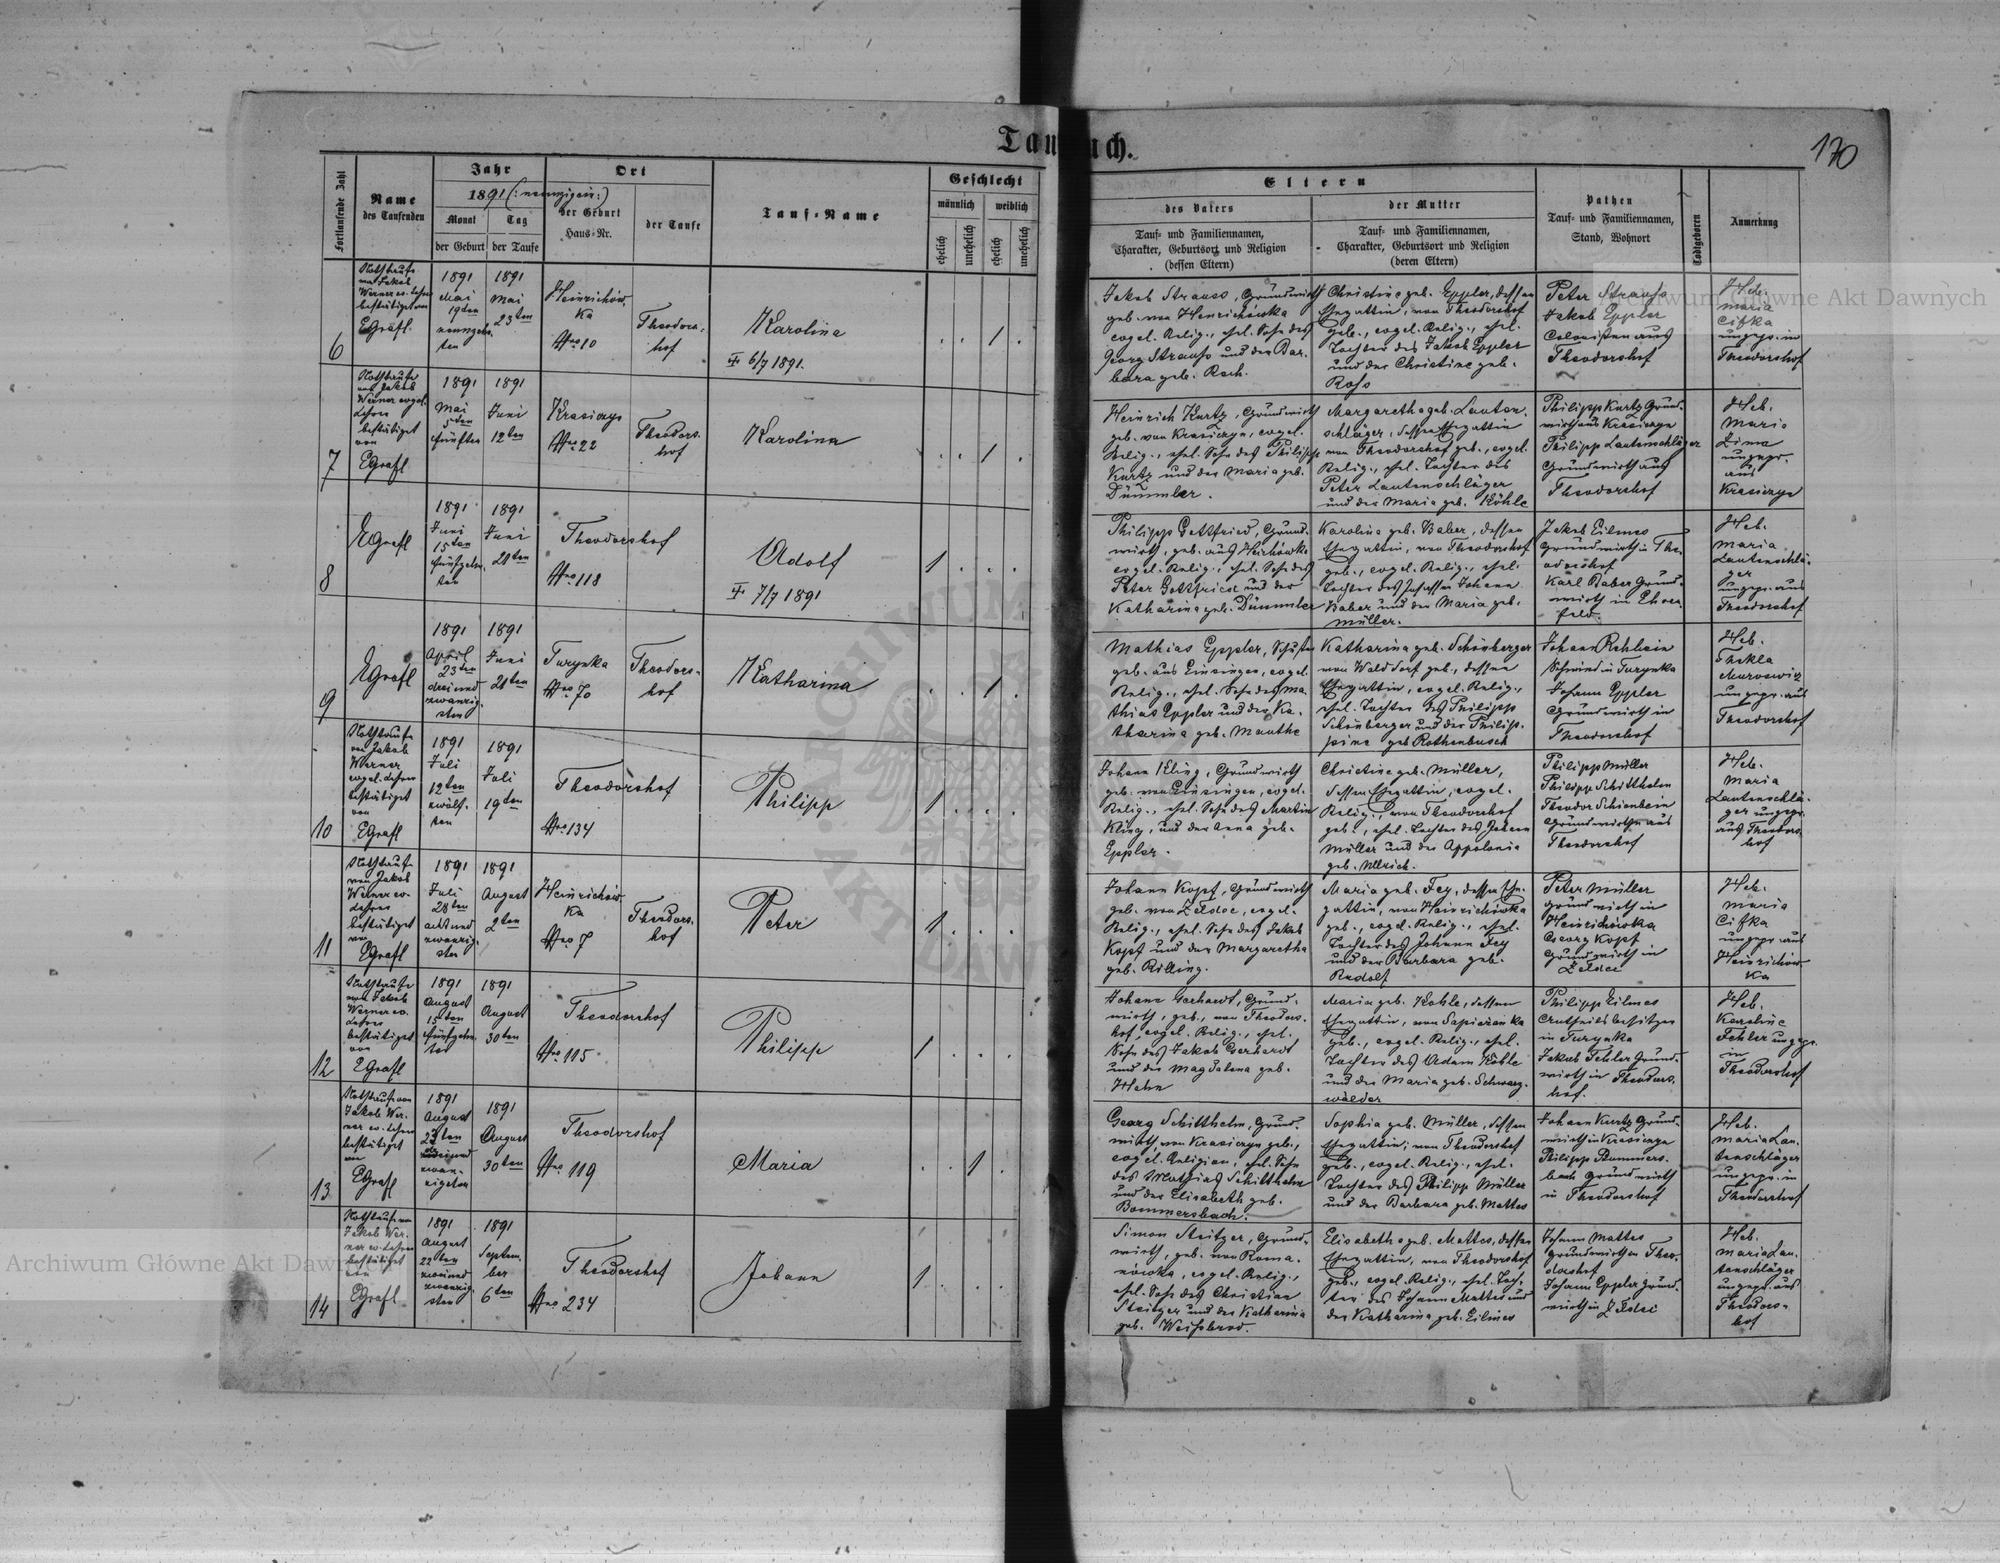 Taufbuch.
170
Fortlaufende Zahl
Name
des Taufenden
Jahr
1891 (: neunzigein :)
Monat
der Geburt
Tag
der Taufe
Ort
der Geburt
Haus-Nr.
der Taufe
Tauf-Name
Geschlecht
männlich
weiblich
ehelich
unehelich
ehelich
unehelich
Eltern
des Vaters
Tauf- und Familiennamen,
Charakter, Geburtsort und Religion
(dessen Eltern)
der Mutter
Tauf- und Familiennamen,
Charakter, Geburtsort und Religion
(deren Eltern)
Pathen
Tauf- und Familiennamen,
Stand, Wohnort
Todtgeboren
Anmerkung
6
Nothtaufe
von Jakob
Werner ev. Lehrer
bestätiget von
EGrafl.
1891
Mai
19ten
neunzehn-
ten
1891
Mai
23ten
Heinrichów-
ka
Nro 10
Theodors-
hof
Karolina
6/7 1891.
1
Jakob Strauss, Grundwirth
geb. von Heinrichówka
evgel. Relig., ehel. Sohn des
Georg Strauss und der Bar-
bara geb. Roch.
Christine geb. Eppler, dessen
Ehegattin, von Theodorshof
geb., evgel. Relig., ehel.
Tochter des Jakob Eppler
und der Christine geb.
Ross
Peter Strauss
Jakob Eppler
Colonisten aus
Theodorshof
Heb.
Maria
Cifka
ungepr. in
Theodorshof
7
Nothtaufe
von Jakob
Werner evgel.
Lehrer
bestätiget
von
EGrafl
1891
Mai
5ten
fünften
1891
Juni
12ten
Krasiczyn
Nro 22
Theodors-
hof
Karolina
1
Heinrich Kurtz, Grundwirth
geb. von Krasiczyn, evgel.
Relig., ehel. Sohn des Philipp
Kurtz und der Maria geb.
Dümmler.
Margaretha geb. Lauten-
schläger, dessen Ehegattin
von Theodorshof geb., evgel.
Relig., ehel. Tochter des
Peter Lautenschläger
und der Maria geb. Köhle
Philipp Kurtz Grund-
wirth aus Krasiczyn
Philipp Lautenschläger
Grundwirth aus
Theodorshof
Heb.
Maria
Zima
ungepr.
aus
Krasiczyn
8
EGrafl
1891
Juni
15ten
fünfzehn-
ten
1891
Juni
21ten
Theodorshof
Nro 118
Adolf
7/7 1891
1
Philipp Gottfried, Grund-
wirth, geb. aus
evgel. Relig., ehel. Sohn des
Peter Gottfried und der
Katharina geb. Dümmler
Karolina geb. Baber, dessen
Ehegattin, von Theodorshof
geb., evgel. Relig., ehel.
Tochter des Johann
Baber und der Maria geb.
Müller.
Jakob Eilmes
Grundwirth in The-
odorshof
Karl Baber Grund-
wirth in
feld.
Heb.
Maria
Lautenschlä-
ger
ungepr. aus
Theodorshof
9
EGrafl
1891
April
23ten
drei und
zwanzig-
sten
1891
Juni
21ten
Turynka
Nro 70
Theodors-
hof
Katharina
1
Mathias Eppler, Schuster
geb. aus Einsingen, evgel.
Relig., ehel. Sohn des Ma-
thias Eppler und der Ka-
tharina geb. Manthe
Katharina geb. Schönberger
von Walddorf geb., dessen
Ehegattin, evgel. Relig.,
ehel. Tochter des Philipp
Schönberger und der Philip-
pine geb. Rothenbusch
Johann Rehlein
Schmied in Turynka
Johann Eppler
Grundwirth in
Theodorshof
Heb.
Thekla
ungepr. aus
Theodorshof
10
Nothtaufe
von Jakob
Werner
evgel. Lehrer
bestätiget
von
EGrafl
1891
Juli
12ten
zwölf-
ten
1891
Juli
19ten
Theodorshof
Nro 134
Philipp
1
Johann Kling, Grundwirth
geb. von Einsingen, evgel.
Relig., ehel. Sohn des Martin
Kling, und der Anna geb.
Eppler.
Christine geb. Müller,
dessen Ehegattin, evgel.
Relig., von Theodorshof
geb., ehel. Tochter des Johann
Müller und der Appolonia
geb. Ullrich.
Philipp Müller
Philipp Schitthelm
Theodor Schienbein
Grundwirthe aus
Theodorshof
Heb.
Maria
Lautenschlä-
ger ungepr.
aus Theodors-
hof
11
Nothtaufe
von Jakob
Werner ev.
Lehrer
bestätiget
von
EGrafl
1891
Juli
28ten
acht und
zwanzig-
sten
1891
August
2ten
Heinrichów-
ka
Nro 7
Theodors-
hof
Peter
1
Johann Kopf, Grundwirth
geb. von Zeldec, evgel.
Relig., ehel. Sohn des Jakob
Kopf und der Margaretha
geb. Rilling.
Maria geb. Fey, dessen Ehe-
gattin, von Heinrichówka
geb., evgel. Relig., ehel.
Tochter des Johann Fey
und der Barbara geb.
Rudolf
Peter Müller
Grundwirth in
Heinrichówka
Georg Kopf
Grundwirth in
Zeldec
Heb.
Maria
Cifka
ungepr. aus
Heinrichów-
ka
12
Nothtaufe
von Jakob
Werner ev.
Lehrer
bestätiget
von
EGrafl
1891
August
15ten
fünfzehn-
ten
1891
August
30ten
Theodorshof
Nro 115
Philipp
1
Johann Gerhardt, Grund-
wirth, geb., von Theodors-
hof, evgel. Relig., ehel.
Sohn des Jakob Gerhardt
und der Magdalena geb.
Hehn
Maria geb. Kohle, dessen
Ehegattin, von Sapieżanka
geb., evgel. Relig., ehel.
Tochter des Adam Köhle
und der Maria geb. Schwarz-
wälder
Philipp Eilmes
Antheilsbesitzer
in Turynka
Jakob Fehler Grund-
wirth in Theodors-
hof.
Heb.
Karoline
Fehler ungepr.
in
Theodorshof
13
Nothtaufe von
Jakob Wer-
ner ev. Lehrer
bestätiget
von
EGrafl
1891
August
ten
und
zwan-
zigsten
1891
August
30ten
Theodorshof
Nro 119
Maria
1
Georg Schitthelm, Grund-
wirth von Krasiczyn geb.,
evgel. Religion, ehel. Sohn
des Mathias Schitthelm
und der Elisabeth geb.
Bommersbach.
Sophia geb. Müller, dessen
Ehegattin, von Theodorshof
geb., evgel. Relig., ehel.
Tochter des Philipp Müller
und der Barbara geb. Mattes
Johann Kurtz Grund-
wirth in Krasiczyn
Philipp Bommers-
bach Grundwirth
in Theodorshof
Heb.
Maria Lau-
tenschläger
ungepr. in
Theodorshof
14
Nothtaufe von
Jakob Wer-
ner ev. Lehrer
bestätiget
von
EGrafl
1891
August
22ten
zwei und
zwanzig-
sten
1891
Septem-
ber
6ten
Theodorshof
Nro 234
Johann
1
Simon Steitzer, Grund-
wirth, geb. von Roma-
nówka, evgel. Relig.,
ehel. Sohn des Christian
Steitzer und der Katharina
geb. Weissbrod.
Elisabetha geb. Mattes, dessen
Ehegattin, von Theodorshof
geb., evgel. Relig., ehel. Toch-
ter des Johann Mattes und
der Katharina geb. Eilmes
Johann Mattes
Grundwirth in Theo-
dorshof
Johann Eppler Grund-
wirth in Zeldec
Heb.
Maria Lau-
tenschläger
ungepr. aus
Theodors-
hof
Archiwum Główne Akt Dawnych
Archiwum Główne Akt Dawnych
ARCHIWUM
AKT DAW